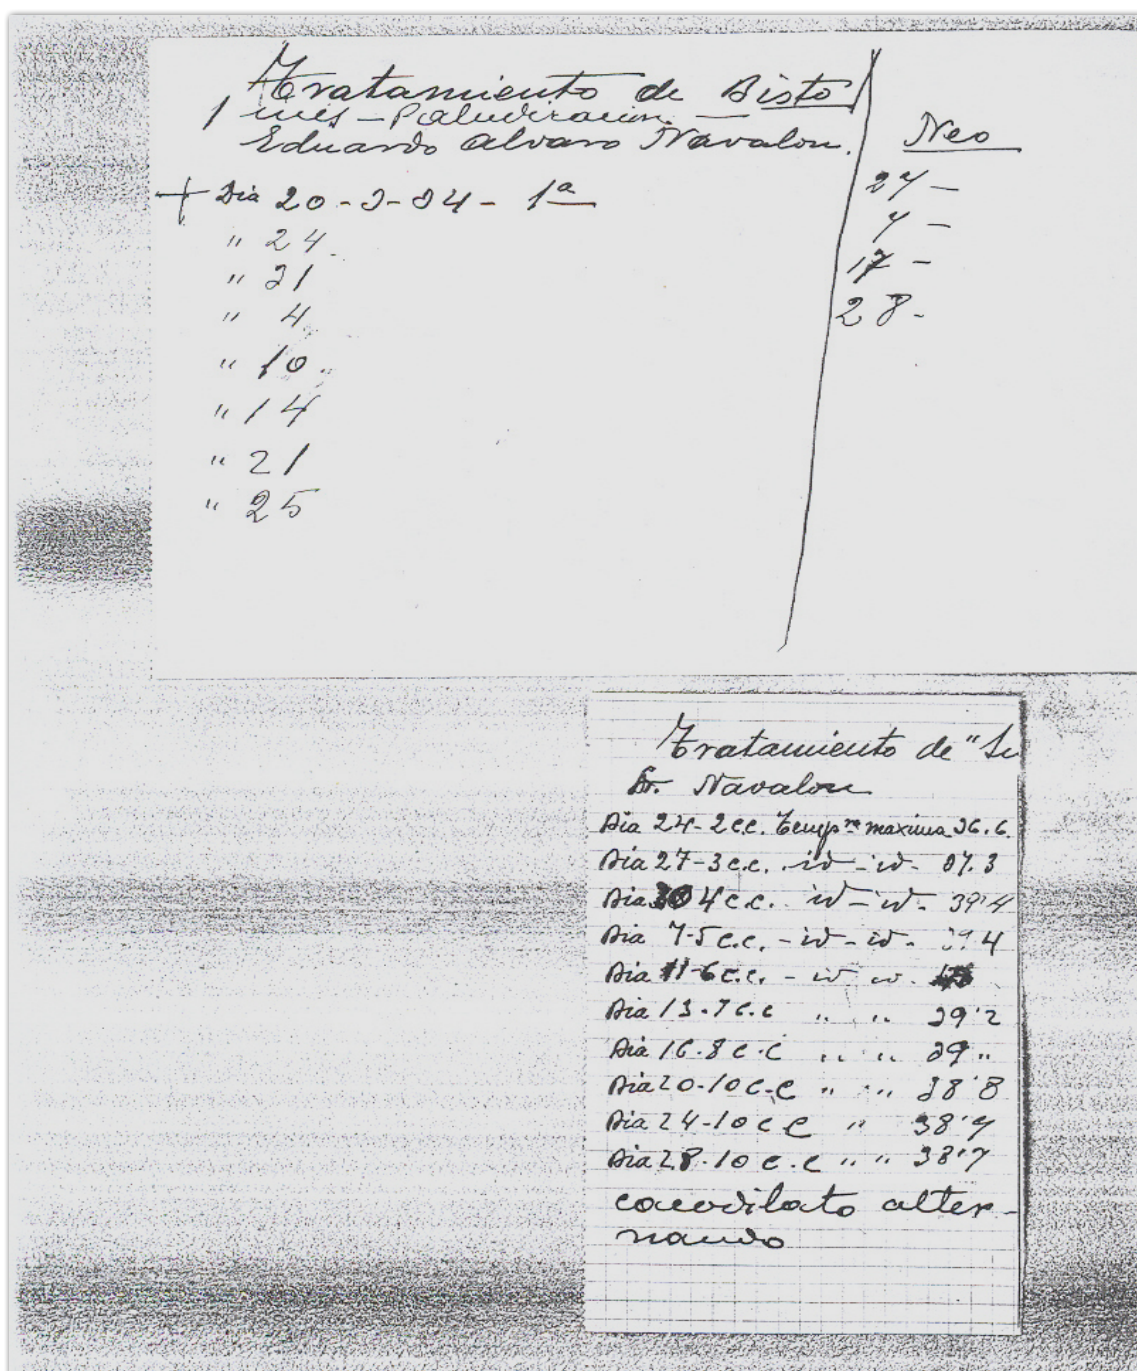 Tratamiento de Bisto
1 mes - Paludizacion -
Eduardo Alvaro Navalon.
Neo
+ Dia 20-3-34- 1ª
27 -
" 24
7 -
" 31
17 -
" 4
28 -
" 10
" 14
" 21
" 25
Tratamiento de "Su
Sr. Navalon
Dia 24-2 c.c. Tempra maxima 36.6
Dia 27-3 c.c. id - id - 37.3
Dia 30 4 c.c. id - id - 39'4
Dia 7-5 c.c. - id - id - 39 4
Dia 11-6 c.c. - id id.
Dia 13-7 c.c " " 39'2
Dia 16-8 c.c " " 39 "
Dia 20-10 c.c " " 38'8
Dia 24-10 c c " 38'7
Dia 28-10 c.c " " 38'7
cacodilato alter-
nando